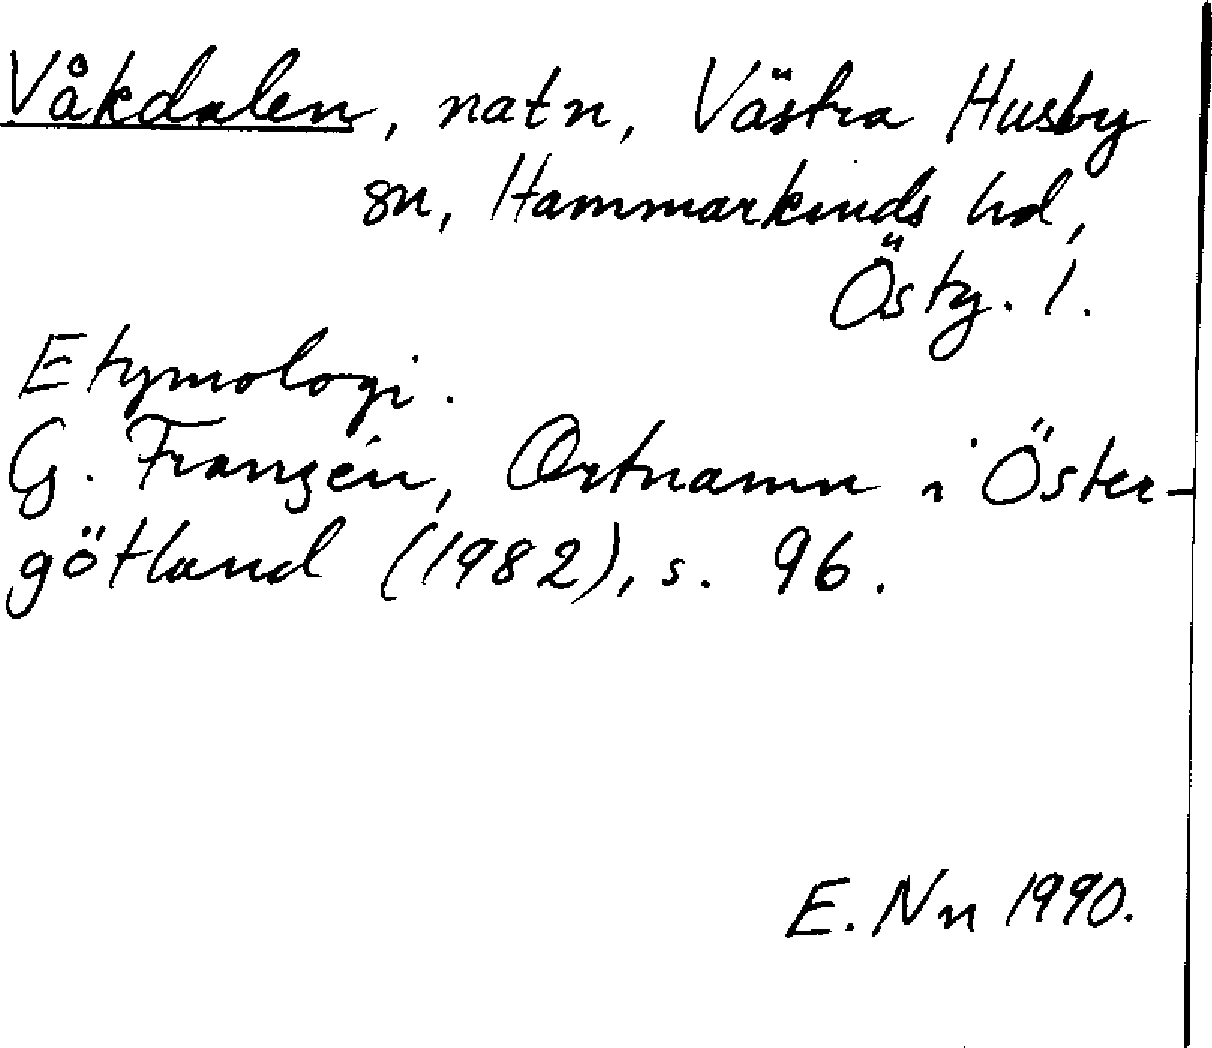 Våkdalen, natn, Västra Husby
sn, Hammarkinds hd,
Östg. l.
Etymologi.
G. Franzén, Ortnamn i Öster-
götland (1982), s. 96.
E. Nn 1990.